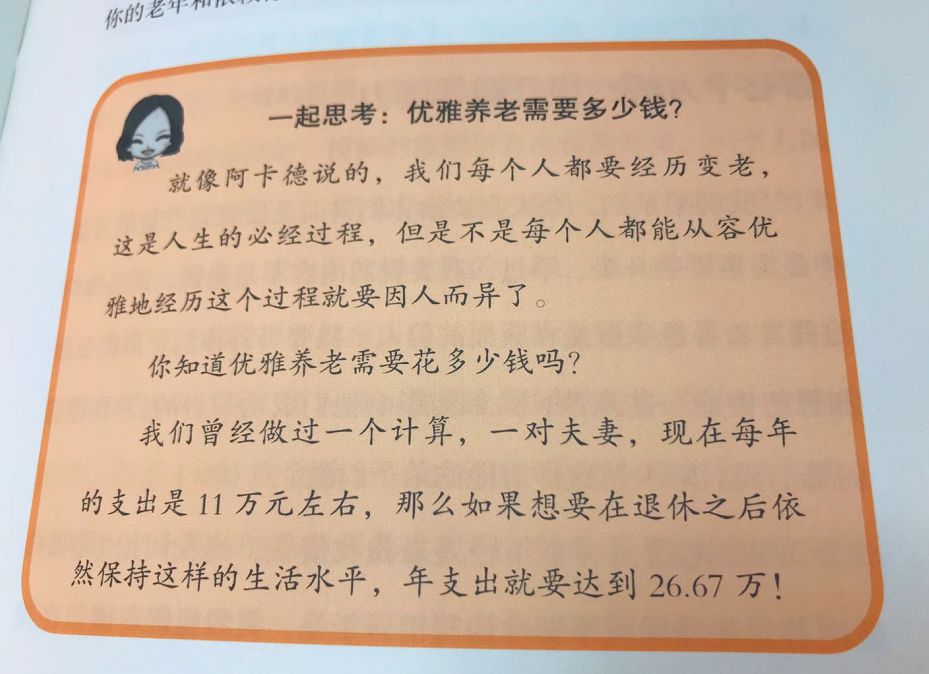 你的老年和依
一起思考：优雅养老需要多少钱？
就像阿卡德说的，我们每个人都要经历变老，
这是人生的必经过程，但是不是每个人都能从容优
雅地经历这个过程就要因人而异了。
你知道优雅养老需要花多少钱吗？
我们曾经做过一个计算，一对夫妻，现在每年
的支出是 11 万元左右，那么如果想要在退休之后依
然保持这样的生活水平，年支出就要达到 26.67 万！